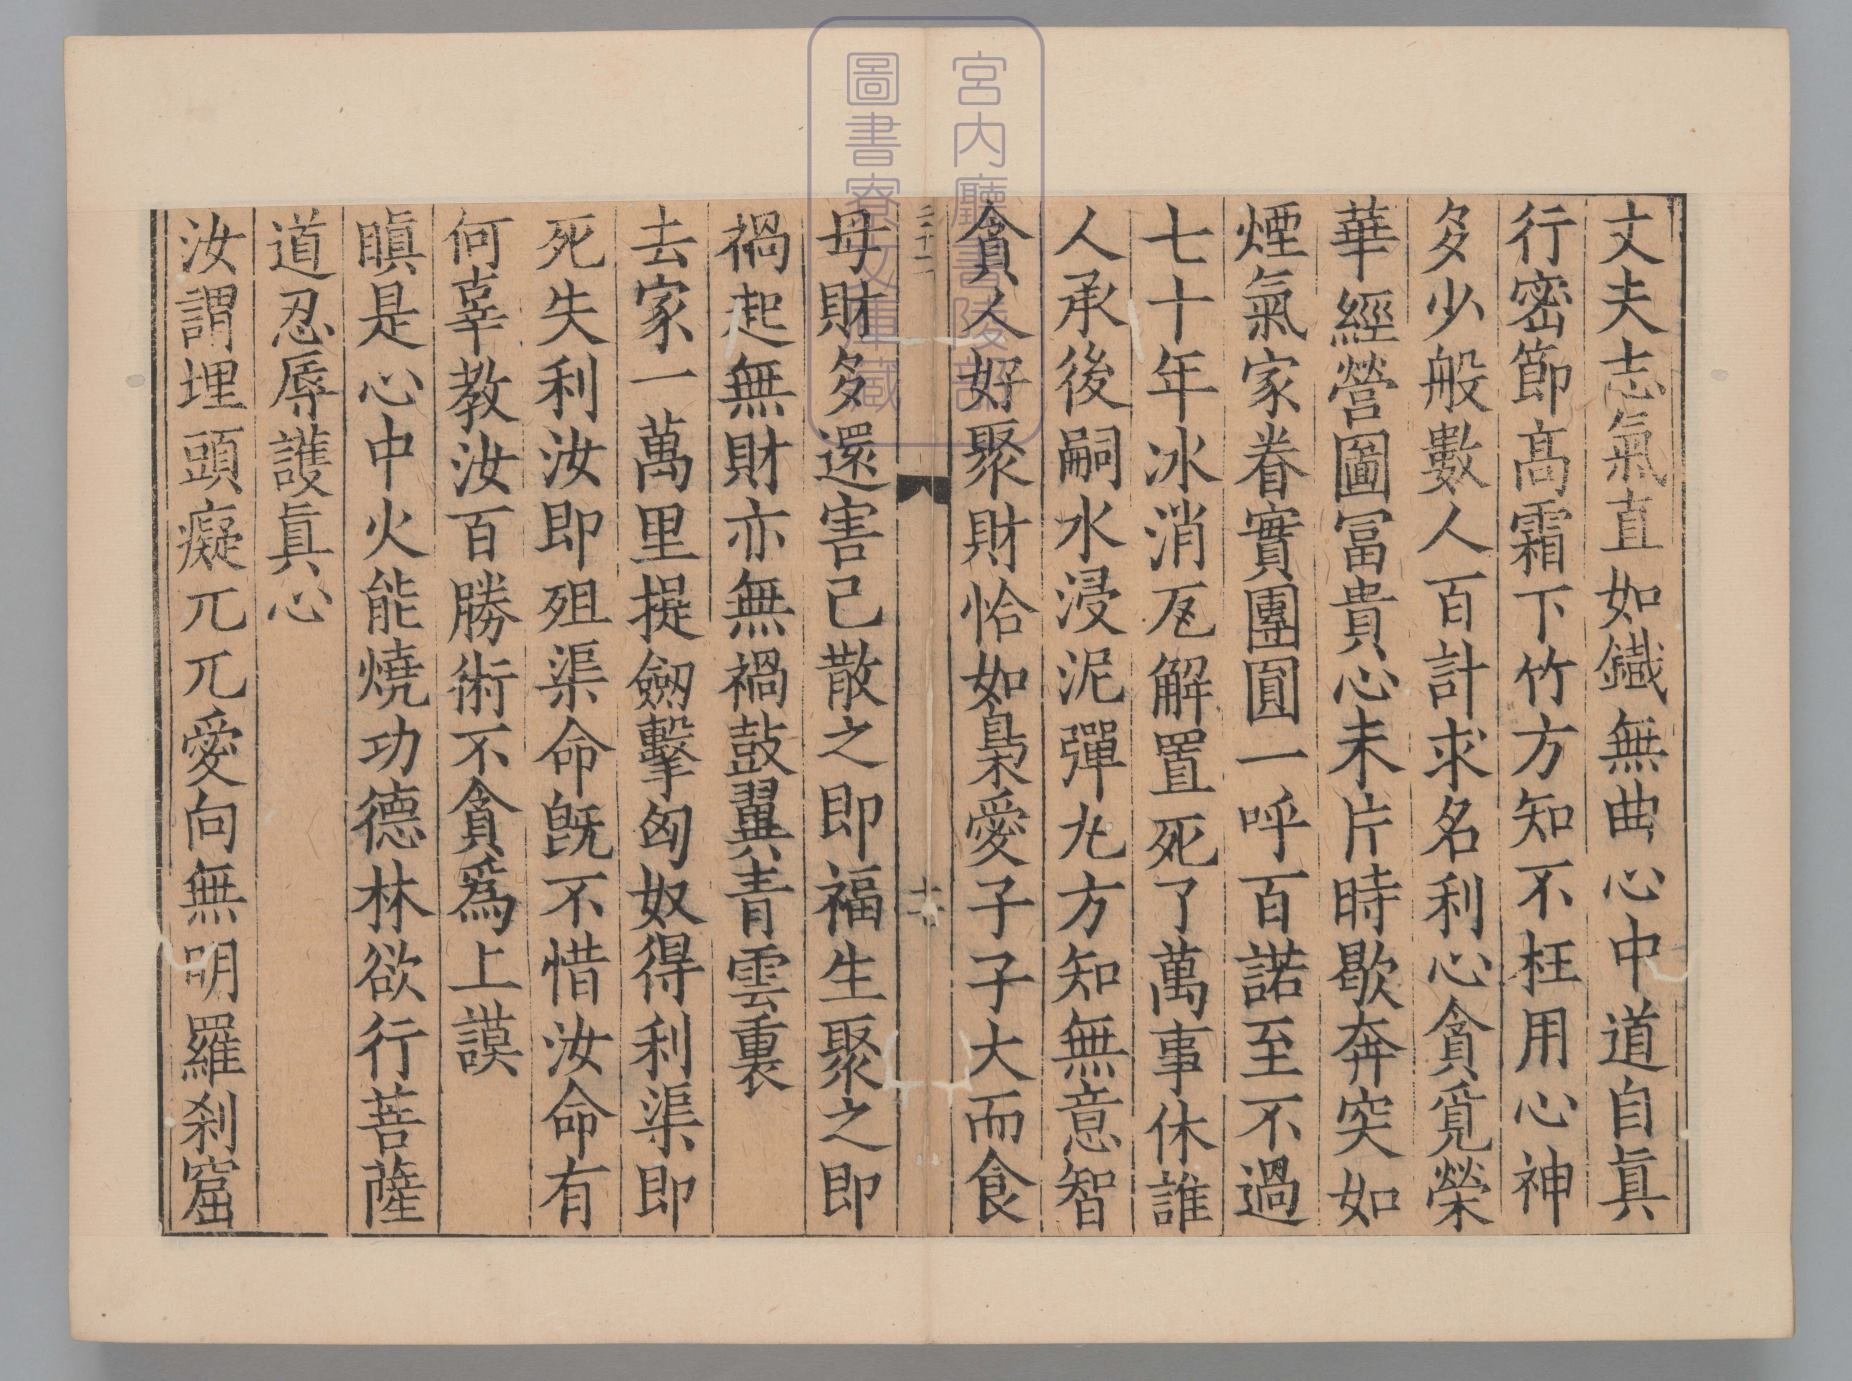 丈夫志氣直如鐵無曲心中道自眞
行密節髙霜下竹方知不枉用心神
多少般數人百計求名利心貪覓榮
華經營圖冨貴心未片時歇奔突如
煙氣家眷實團圓一呼百諾至不過
七十年冰消瓦解置死了萬事休誰
人承後嗣水浸泥彈丸方知無意智
貪人好聚財恰如梟愛子子大而食
二十二
十六
母財多還害己散之即福生聚之即
禍起無財亦無禍鼓翼青雲裏
去家一萬里提劒擊匈奴得利渠即
死失利汝即殂渠命旣不惜汝命有
何辜教汝百勝術不貪爲上謨
瞋是心中火能燒功德林欲行菩薩
道忍辱護眞心
汝謂埋頭癡兀兀愛向無明羅刹窟
宮内廳書陵部
圖書寮文庫藏